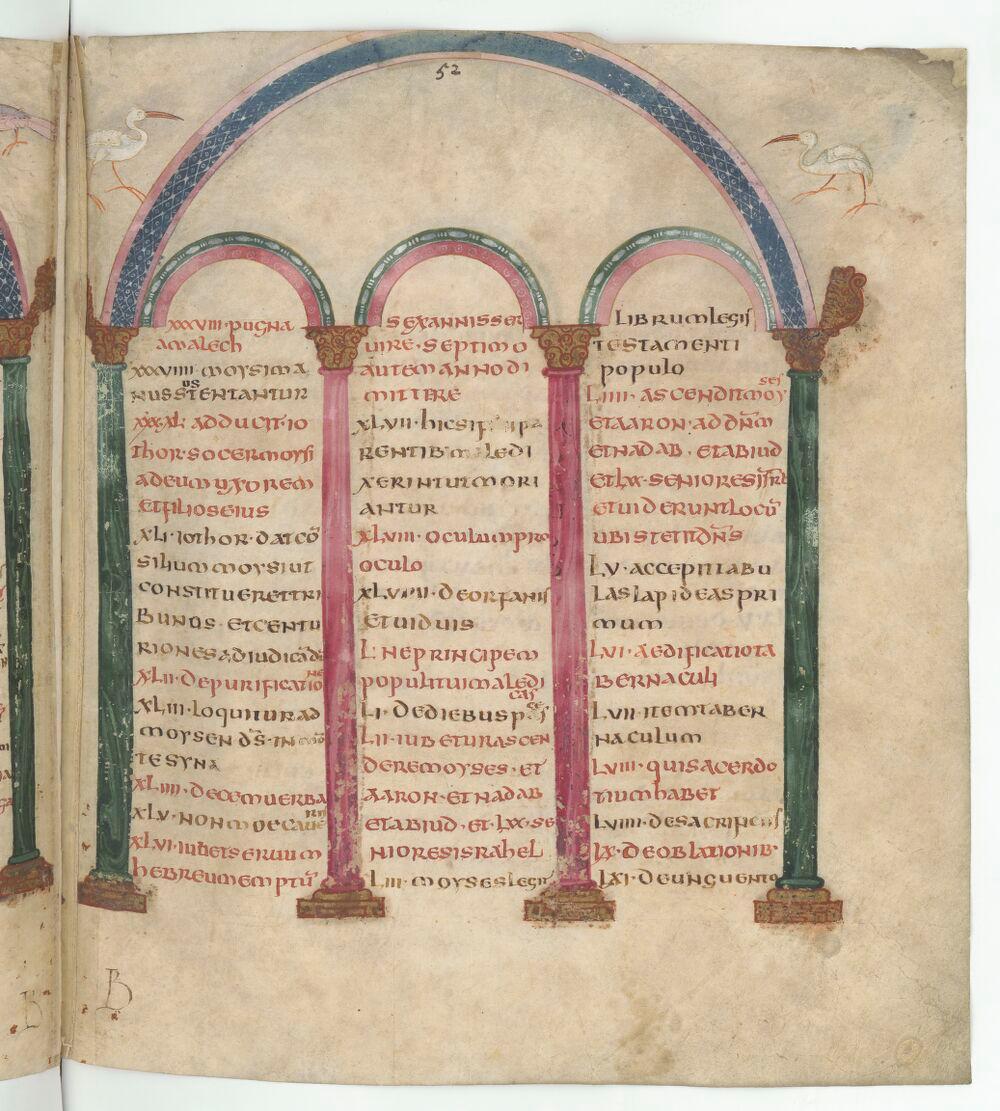 52
XXXVIII · PUGNA
AMALECH
XXXVIIII · MOYSI MA
NUS SUSTENTANTUR
XL · ADDUCIT · IO
THOR · SOCER MOYSI
AD EUM UXOREM
ET FILIOS EIUS
XLI · IOTHOR · DAT CŌ
SILIUM MOYSI UT
CONSTITUERET TRI
BUNOS · ET CENTU
RIONES AD IUDICĀD
XLII · DE PURIFICATIONE
XLIII · LOQUITUR AD
MOYSEN D̄S · IN MŌ
TE SYNA
XLIIII · DECEM UERBA
XLV · NON MOECAUERIS
XLVI · IUBET SERUUM
HEBREUM EMPTŪ
SEX ANNIS SER
UIRE · SEPTIMO
AUTEM ANNO DI
MITTERE
XLVII · HIC SI
RENTIB MALEDI
XERINT UT MORI
ANTUR
XLVIII · OCULUM PRO
OCULO
XLVIIII · DE ORFANIS
ET UIDUIS
L · NE PRINCIPEM
POPULI TUI MALEDICAS
LI · DE DIEBUS
LII · IUBETUR ASCEN
DERE MOYSES · ET
AARON · ET NADAB
ET ABIUD · ET · LXX · SE
NIORES ISRAHEL
LIII · MOYSES LEGIT
LIBRUM LEGIS
TESTAMENTI
POPULO
LIIII · ASCENDIT MOYSES
ET AARON · AD DN̄M
ET NADAB · ET ABIUD
ET LXX · SENIORES ISRL
ET UIDERUNT LOCŪ
UBI STETIT DN̄S
LV · ACCEPIT TABU
LAS LAPIDEAS PRI
MUM
LVI · AEDIFICATIO TA
BERNACULI
LVII · ITEM TABER
NACULUM
LVIII · QUI SACERDO
TIUM HABET
LVIIII · DE SACRIFICIIS
LX · DE OBLATIONIB·
LXI · DE UNGUENTO
B
B